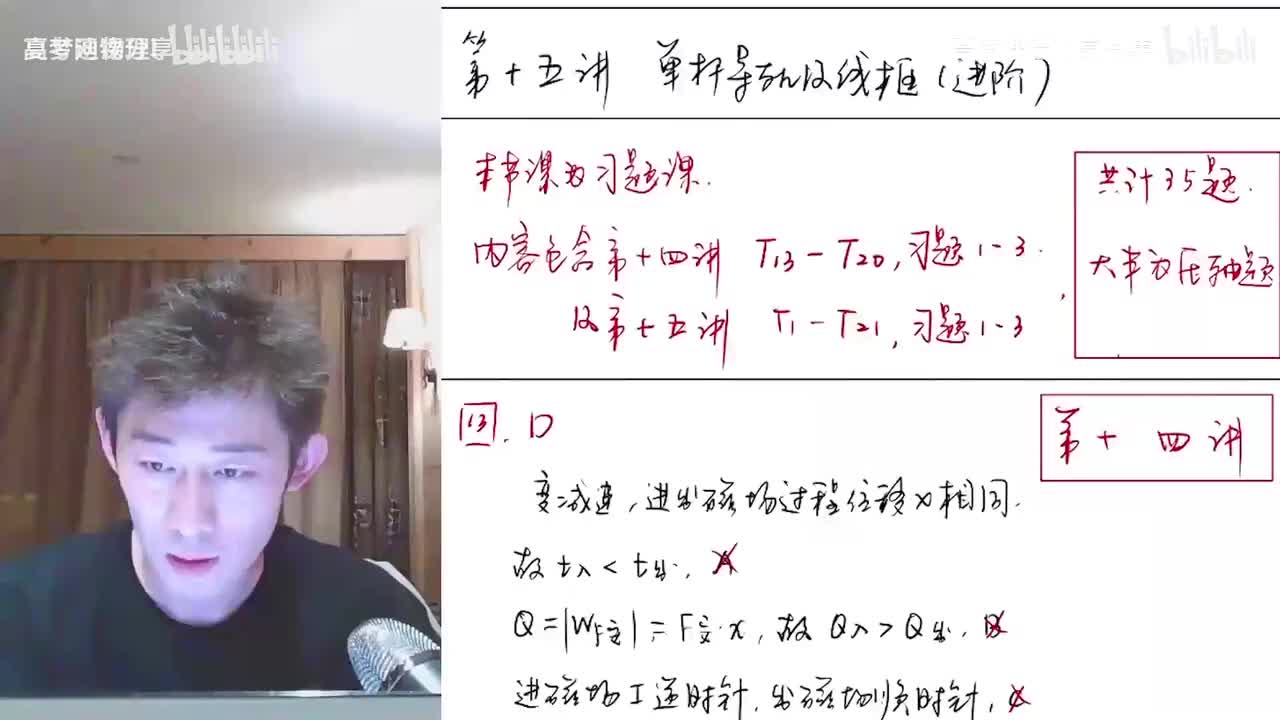 bilibili
bilibili
第十五讲 单杆导轨及线框(进阶)
本节课为习题课.
共计35题.
内容包含第十四讲 T13-T20,习题1-3.
大半为压轴题
及第十五讲 T1-T21,习题1-3
13. D
第十四讲
变减速,进出磁场过程位移x相同.
故t入<t出. A
Q=|WF安|=F安·x,故Q入>Q出. B
进磁场I逆时针,出磁场顺时针,C